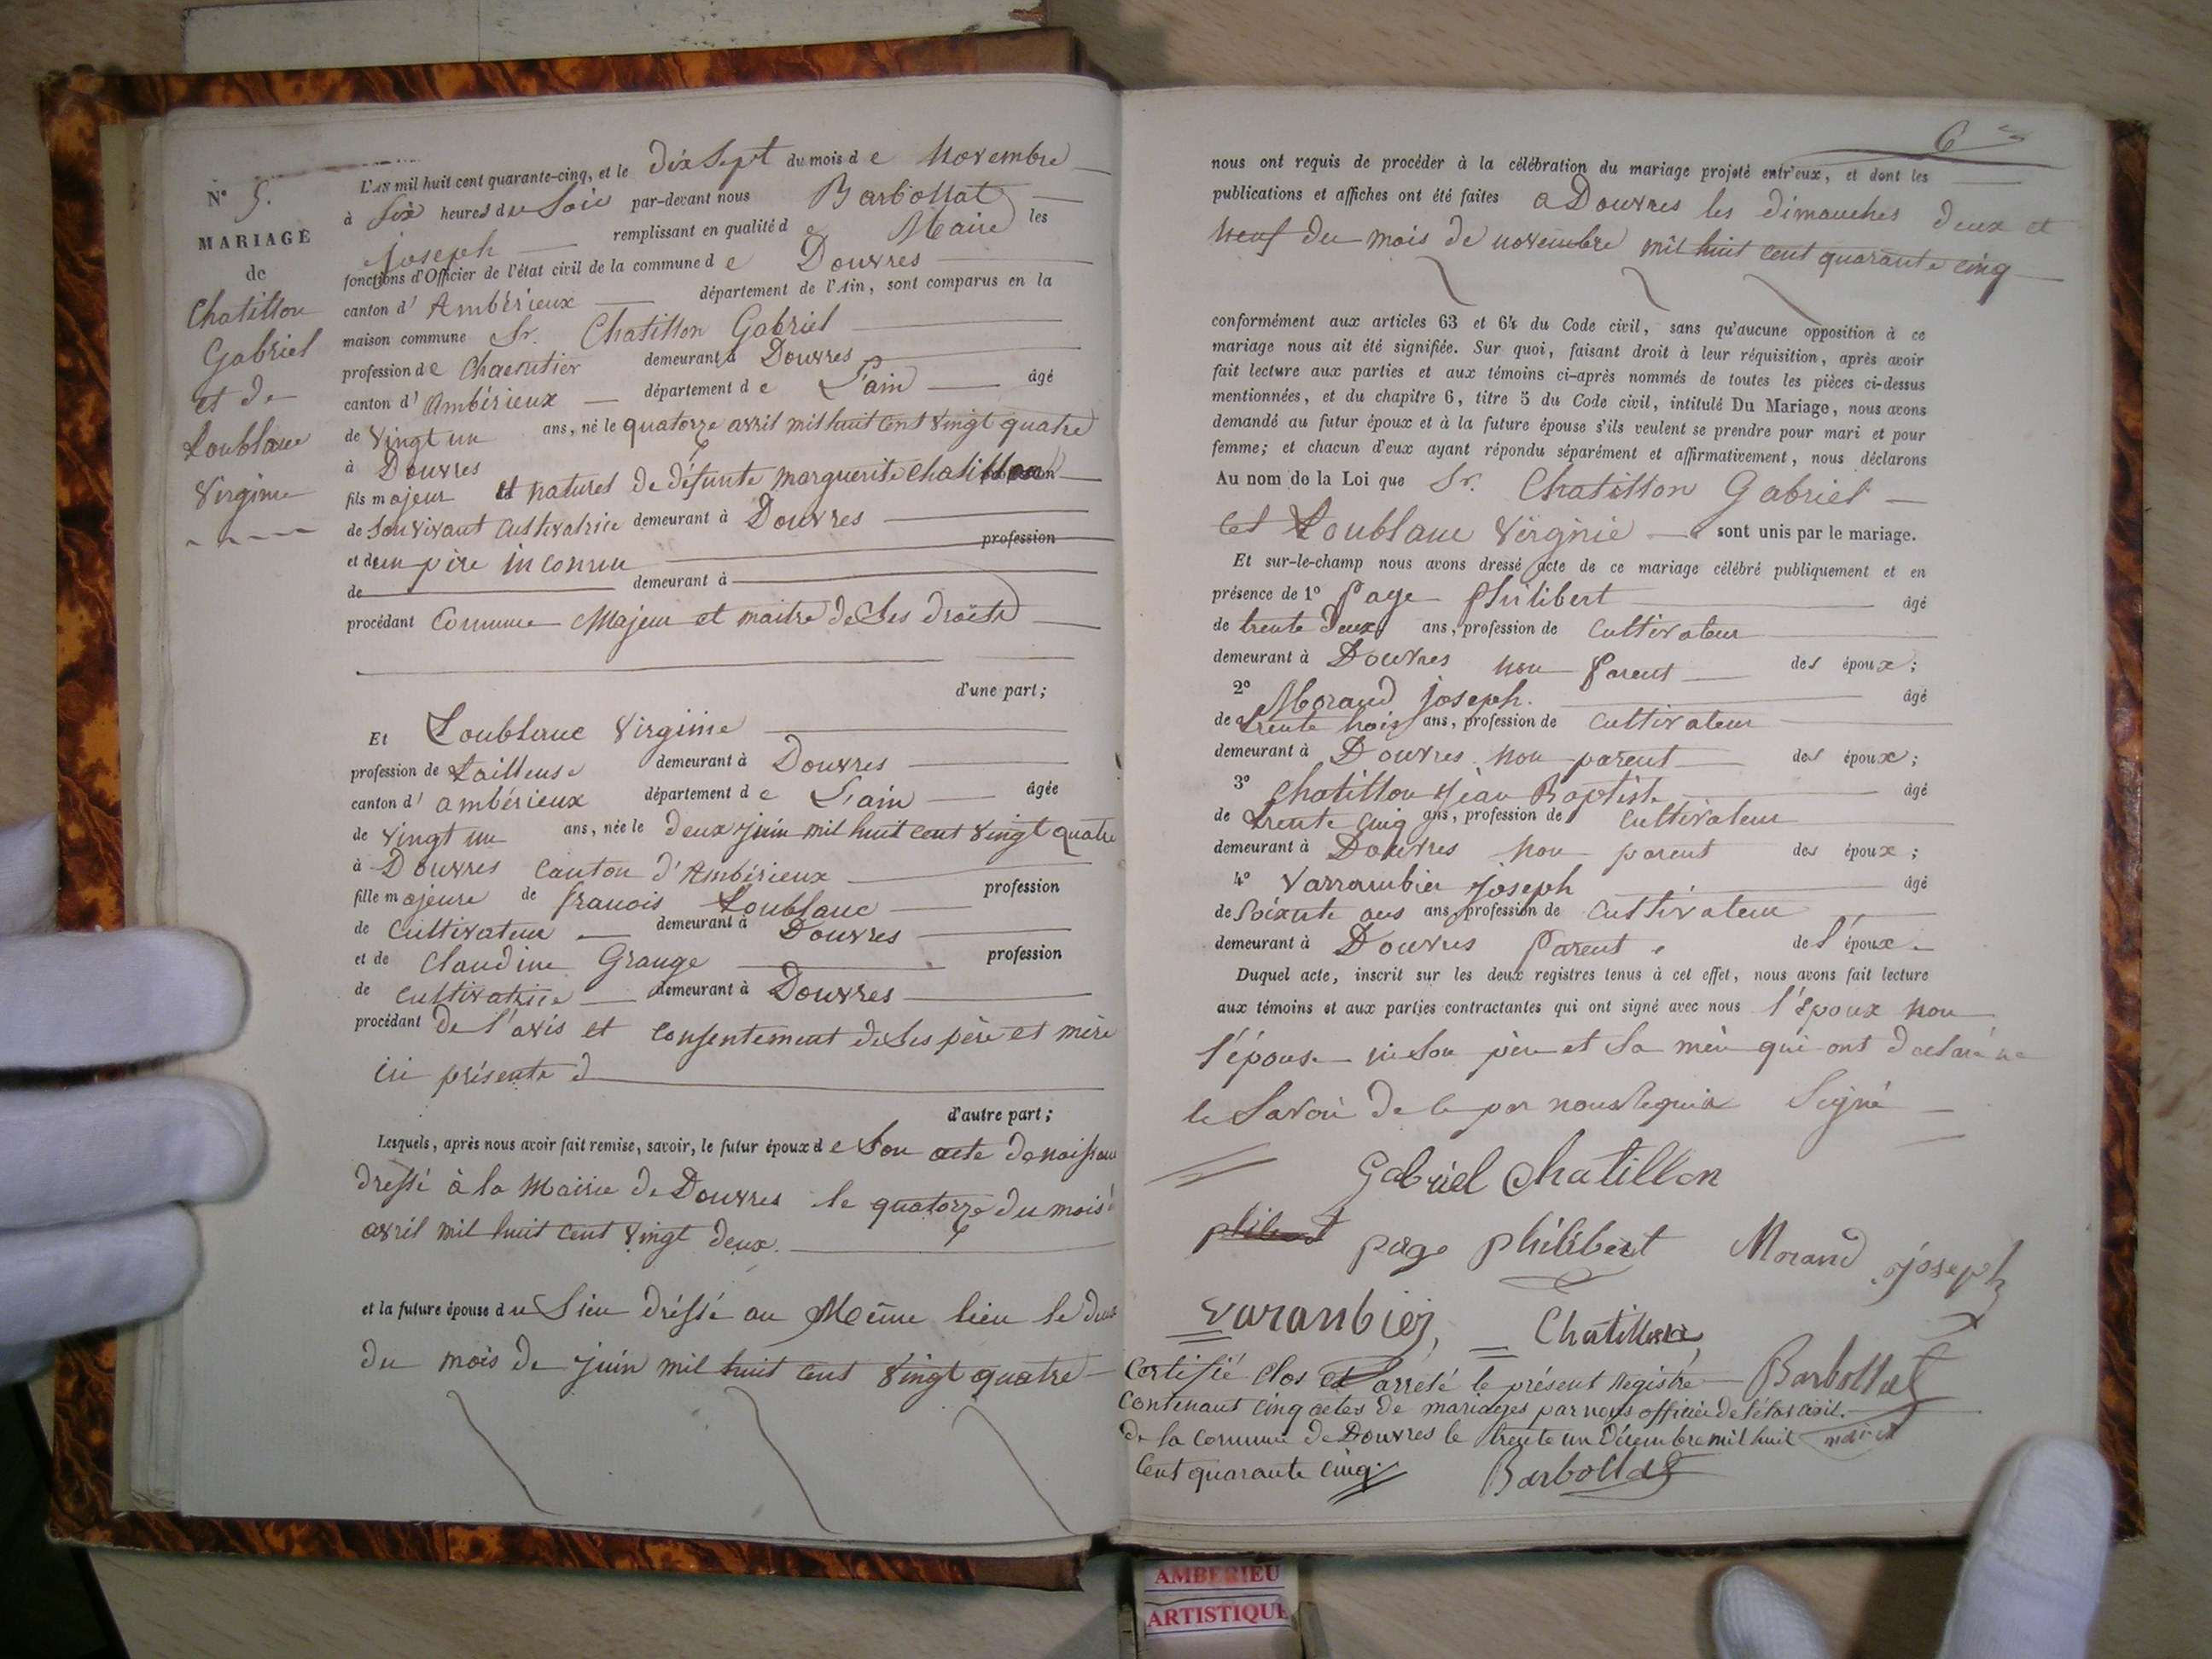 N° 5.
MARIAGE
de
Chatillon
Gabriel
et de
Loublanc
Virginie
L'AN mil huit cent quarante-cinq, et le dix Sept du mois de Novembre
à Six heures du Soir par-devant nous Barbollat
joseph remplissant en qualité de Maire les
fonctions d'Officier de l'état civil de la commune de Douvres
canton d' Ambérieux département de l'Ain, sont comparus en la
maison commune Sr. Chatillon Gabriel
profession de Charcutier demeurant à Douvres
canton d' Ambérieux département de L'ain âgé
de vingt un ans, né le quatorze avril mil huit cent vingt quatre
à Douvres
fils majeur et naturel de défunte marguerite chatillon
de Son vivant cultivatrice demeurant à Douvres
profession
et d'un père inconnu
de demeurant à
procédant Comme Majeur et maitre de Ses droits
d'une part;
Et Loublanc Virginie
profession de tailleuse demeurant à Douvres
canton d' ambérieux département de L'ain âgée
de vingt un ans, née le deux juin mil huit cent vingt quatre
à Douvres canton d'Ambérieux
fille majeure de francois Loublanc profession
de Cultivateur demeurant à Douvres
et de Claudine Grange profession
de cultivatrice demeurant à Douvres
procédant de l'avis et consentement de Ses père et mère
ici présents d
d'autre part;
Lesquels, après nous avoir fait remise, savoir, le futur époux de Son acte de naissance
dressé à la Mairie de Douvres le quatorze du mois d'
avril mil huit cent vingt deux.
et la future épouse du Sien dréssé au Même lieu le deux
du mois de juin mil huit cent vingt quatre
6
nous ont requis de procéder à la célébration du mariage projeté entr'eux, et dont les
publications et affiches ont été faites a Douvres les dimanches deux et
neuf du mois de novembre mil huit cent quarante cinq
conformément aux articles 63 et 64 du Code civil, sans qu'aucune opposition à ce
mariage nous ait été signifiée. Sur quoi, faisant droit à leur réquisition, après avoir
fait lecture aux parties et aux témoins ci-après nommés de toutes les pièces ci-dessus
mentionnées, et du chapitre 6, titre 5 du Code civil, intitulé Du Mariage, nous avons
demandé au futur époux et à la future épouse s'ils veulent se prendre pour mari et pour
femme; et chacun d'eux ayant répondu séparément et affirmativement, nous déclarons
Au nom de la Loi que Sr. Chatillon Gabriel
et Loublanc Virginie sont unis par le mariage.
Et sur-le-champ nous avons dressé acte de ce mariage célébré publiquement et en
présence de 1° Page Philibert âgé
de trente deux ans, profession de Cultivateur
demeurant à Douvres non Parent des époux;
2° Morand joseph. âgé
de trente trois ans, profession de cultivateur
demeurant à Douvres non parent des époux;
3° Chatillon jean Baptiste âgé
de trente cinq ans, profession de Cultivateur
demeurant à Douvres non parent des époux;
4° Varrambier joseph âgé
de Soixante ans ans, profession de Cultivateur
demeurant à Douvres Parent de l'époux
Duquel acte, inscrit sur les deux registres tenus à cet effet, nous avons fait lecture
aux témoins et aux parties contractantes qui ont signé avec nous l'époux non
l'épouse ni son père et Sa mère qui ont déclaré ne
le Savoir de ce par nous requis Signé
Gabriel Chatillon
page philibert Morand joseph
varanbier, Chatillon
Certifié clos et arrété le présent registre Barbollat
Contenant cinq actes de mariages par nous officier de l'état civil.
de la commune de Douvres le trente un Décembre mil huit
Cent quarante cinq. Barbollat
AMBERIEU
ARTISTIQUE